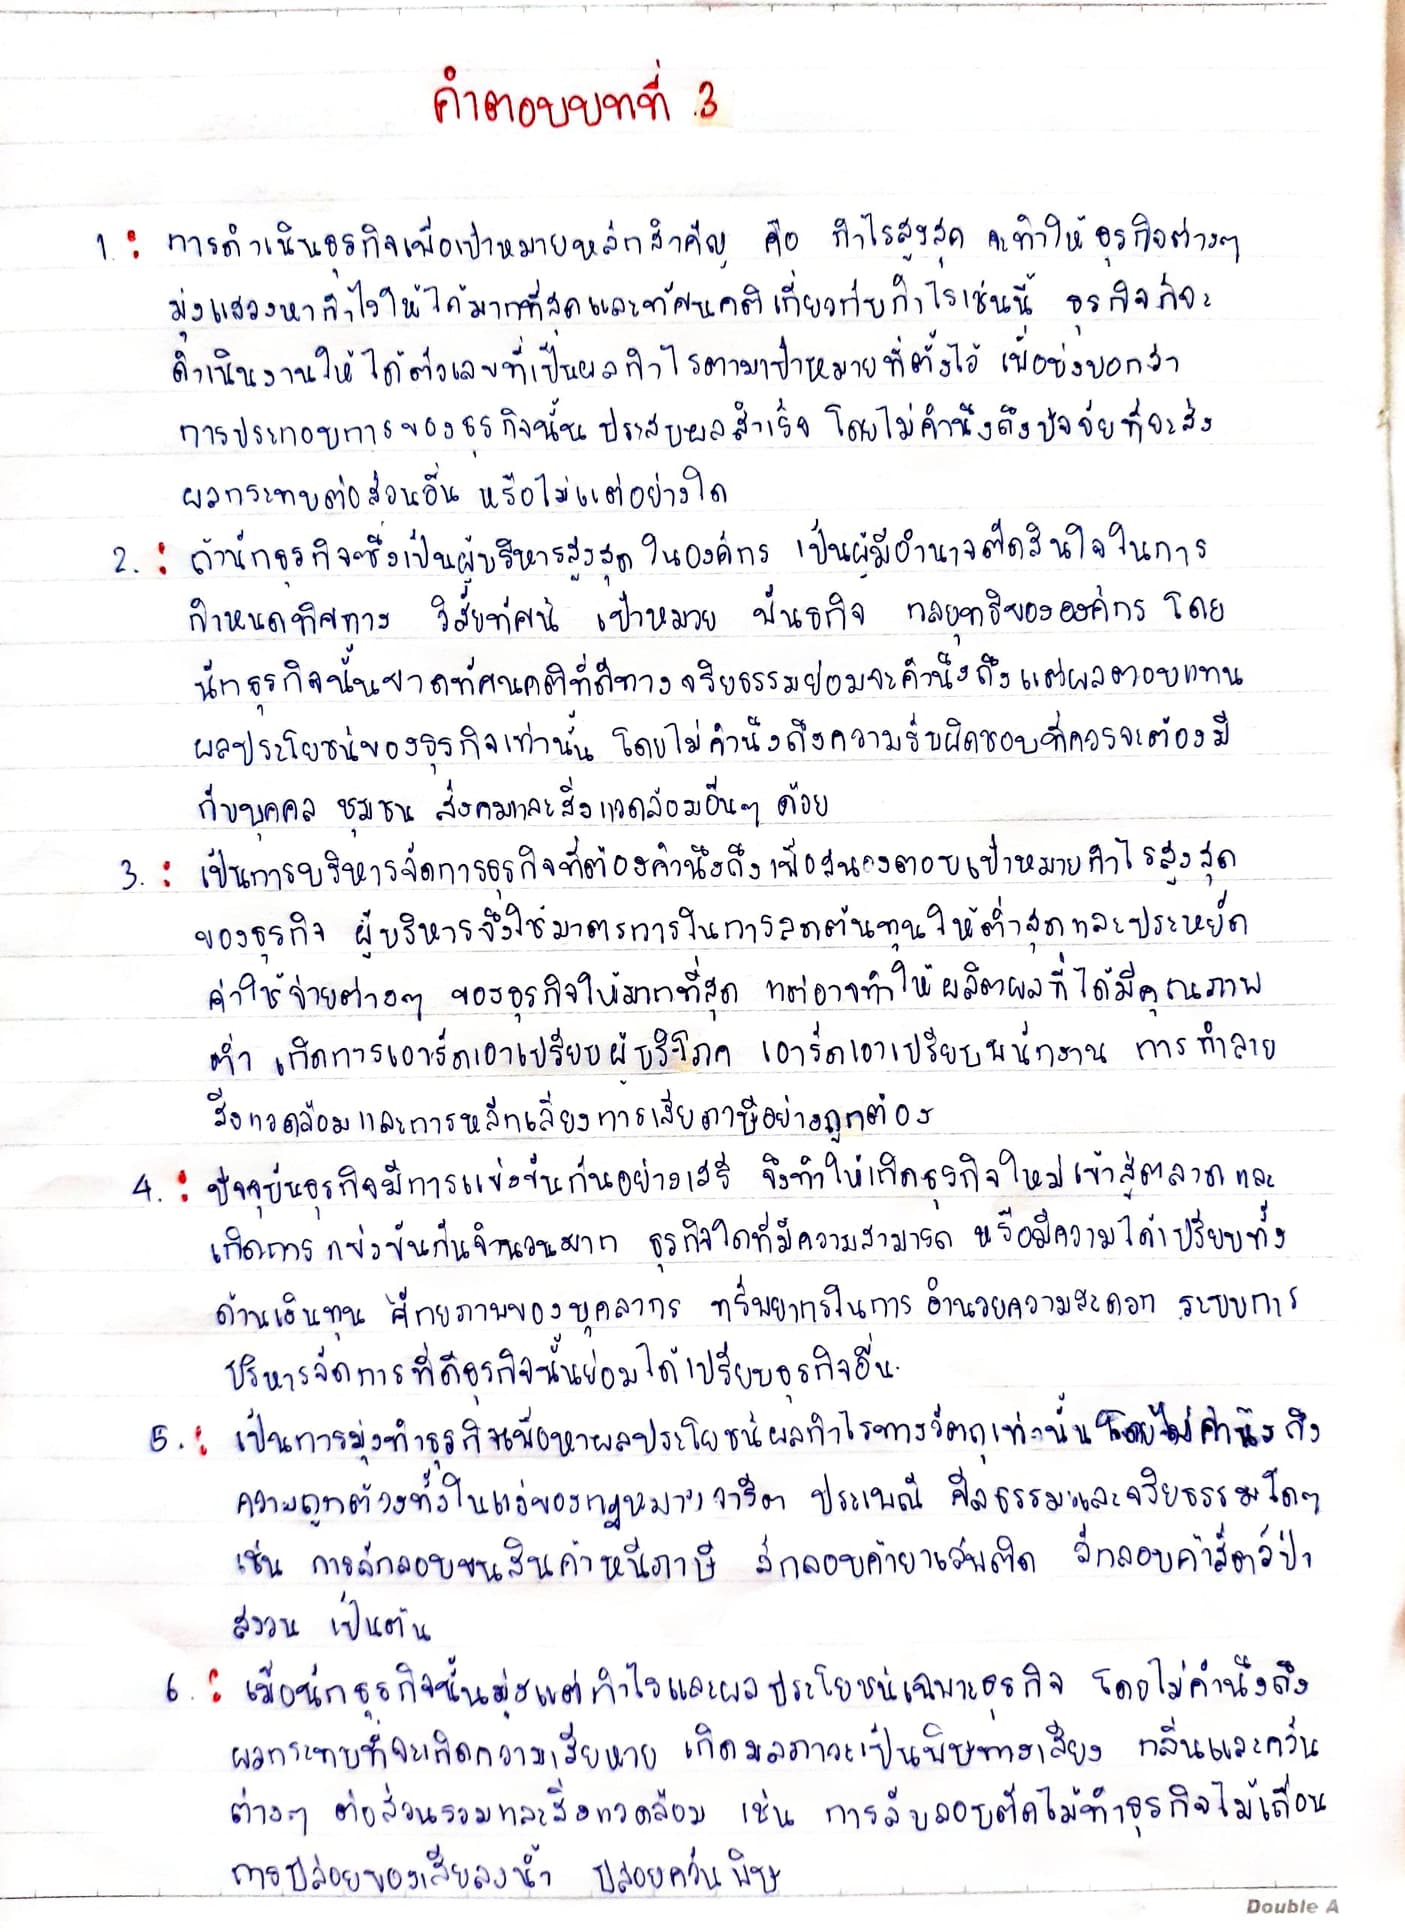 คำตอบบทที่ 3
1. : การดำเนินธุรกิจเพื่อเป้าหมายหลักสำคัญ คือ กำไรสูงสุด จะทำให้ธุรกิจต่างๆ
มุ่งแสวงหากำไรให้ได้มากที่สุดและทัศนคติเกี่ยวกับกำไรเช่นนี้ ธุรกิจก็จะ
ดำเนินงานให้ได้ตัวเลขที่เป็นผลกำไรตามเป้าหมายที่ตั้งไว้ เพื่อบ่งบอกว่า
การประกอบการของธุรกิจนั้น ประสบผลสำเร็จ โดยไม่คำนึงถึงปัจจัยที่จะส่ง
ผลกระทบต่อส่วนอื่น หรือไม่แต่อย่างใด
2. : ถ้านักธุรกิจซึ่งเป็นผู้บริหารสูงสุดในองค์กร เป็นผู้มีอำนาจตัดสินใจในการ
กำหนดทิศทาง วิสัยทัศน์ เป้าหมาย พันธกิจ กลยุทธ์ขององค์กร โดย
นักธุรกิจนั้นขาดทัศนคติที่ดีทางจริยธรรมย่อมจะคำนึงถึงแต่ผลตอบแทน
ผลประโยชน์ของธุรกิจเท่านั้น โดยไม่คำนึงถึงความรับผิดชอบที่ควรจะต้องมี
กับบุคคล ชุมชน สังคมและสิ่งแวดล้อมอื่นๆ ด้วย
3. : เป็นการบริหารจัดการธุรกิจที่ต้องคำนึงถึงเพื่อสนองตอบเป้าหมายกำไรสูงสุด
ของธุรกิจ ผู้บริหารจึงใช้มาตรการในการลดต้นทุนให้ต่ำสุดและประหยัด
ค่าใช้จ่ายต่างๆ ของธุรกิจให้มากที่สุด แต่อาจทำให้ผลิตผลที่ได้มีคุณภาพ
ต่ำ เกิดการเอารัดเอาเปรียบผู้บริโภค เอารัดเอาเปรียบพนักงาน การทำลาย
สิ่งแวดล้อมและการหลีกเลี่ยงการเสียภาษีอย่างถูกต้อง
4. : ปัจจุบันธุรกิจมีการแข่งขันกันอย่างเสรี จึงทำให้เกิดธุรกิจใหม่เข้าสู่ตลาดและ
เกิดการแข่งขันกันจำนวนมาก ธุรกิจใดที่มีความสามารถ หรือมีความได้เปรียบทั้ง
ด้านเงินทุน ศักยภาพของบุคลากร ทรัพยากรในการอำนวยความสะดวก ระบบการ
บริหารจัดการที่ดีธุรกิจนั้นย่อมได้เปรียบธุรกิจอื่น
5. : เป็นการมุ่งทำธุรกิจเพื่อหาผลประโยชน์ผลกำไรทางวัตถุเท่านั้นโดยไม่คำนึงถึง
ความถูกต้องทั้งในแง่ของกฎหมาย จารีต ประเพณี ศีลธรรมและจริยธรรมใดๆ
เช่น การลักลอบขนสินค้าหนีภาษี ลักลอบค้ายาเสพติด ลักลอบค้าสัตว์ป่า
สงวน เป็นต้น
6. : เมื่อนักธุรกิจนั้นมุ่งแต่กำไรและผลประโยชน์เฉพาะธุรกิจ โดยไม่คำนึงถึง
ผลกระทบที่จะเกิดความเสียหาย เกิดมลภาวะเป็นพิษทางเสียง กลิ่นและควัน
ต่างๆ ต่อส่วนรวมและสิ่งแวดล้อม เช่น การลับลอบตัดไม้ทำธุรกิจไม้เถื่อน
การปล่อยของเสียลงน้ำ ปล่อยควันพิษ
Double A